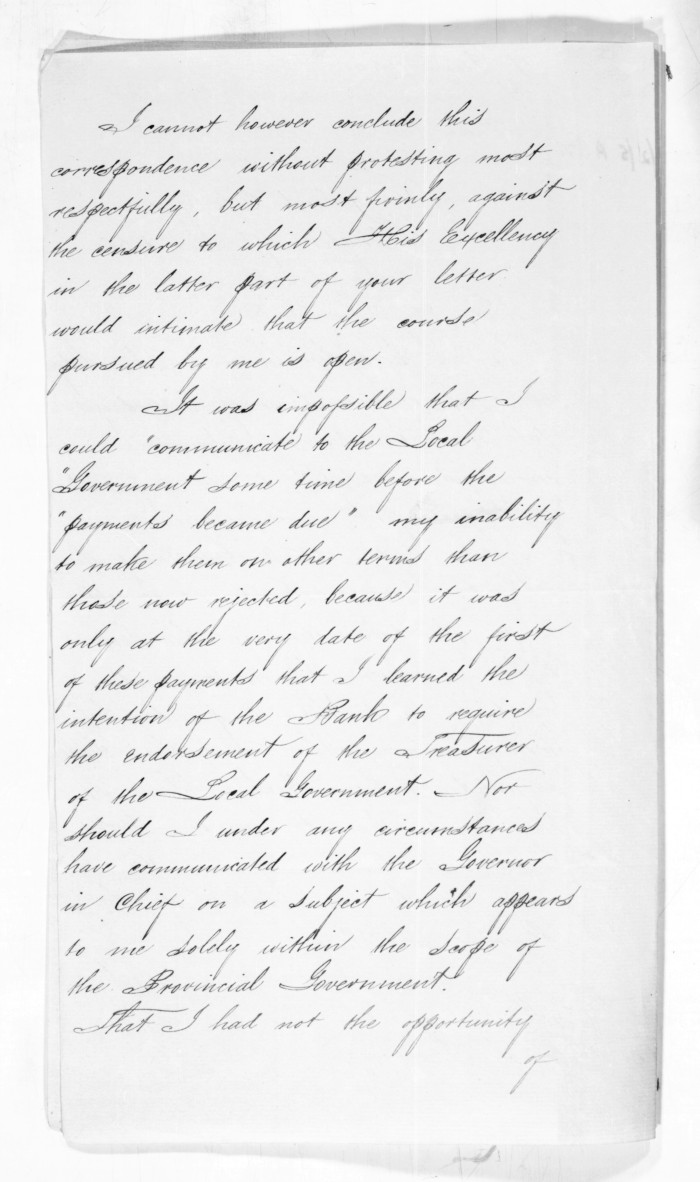 I cannot however conclude this
correspondence without protesting most
respectfully, but most firmly, against
the censure to which His Excellency
in the latter part of your letter
would intimate that the course
pursued by me is open.
It was impossible that I
could "communicate to the Local
"Government some time before the
"payments became due" my inability
to make them on other terms than
those now rejected, because it was
only at the very date of the first
of these payments that I learned the
intention of the Bank to require
the endorsement of the Treasurer
of the Local Government. Nor
should I under any circumstances
have communicated with the Governor
in Chief on a subject which appears
to me solely within the scope of
the Provincial Government.
That I had not the opportunity
of